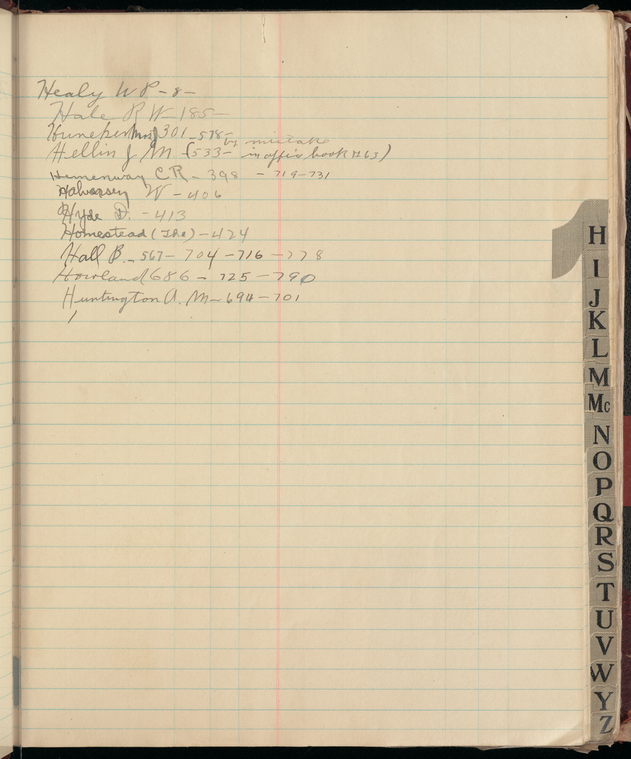 Healy W P - 8 -
Hale R W - 185 -
Huneker Mrs J 301 - 578 -
by mistake
Hellin J M (533 - in office book #163)
Hemenway C R - 398 - 719 - 731
Halvorsen W - 406
Hyde D. - 413
Homestead (The) - 424
Hall B. - 567 - 704 - 716 - 778
Howland 686 - 725 - 790
Huntington A. M - 694 - 701
H
I
J
K
L
M
Mc
N
O
P
Q
R
S
T
U
V
W
Y
Z